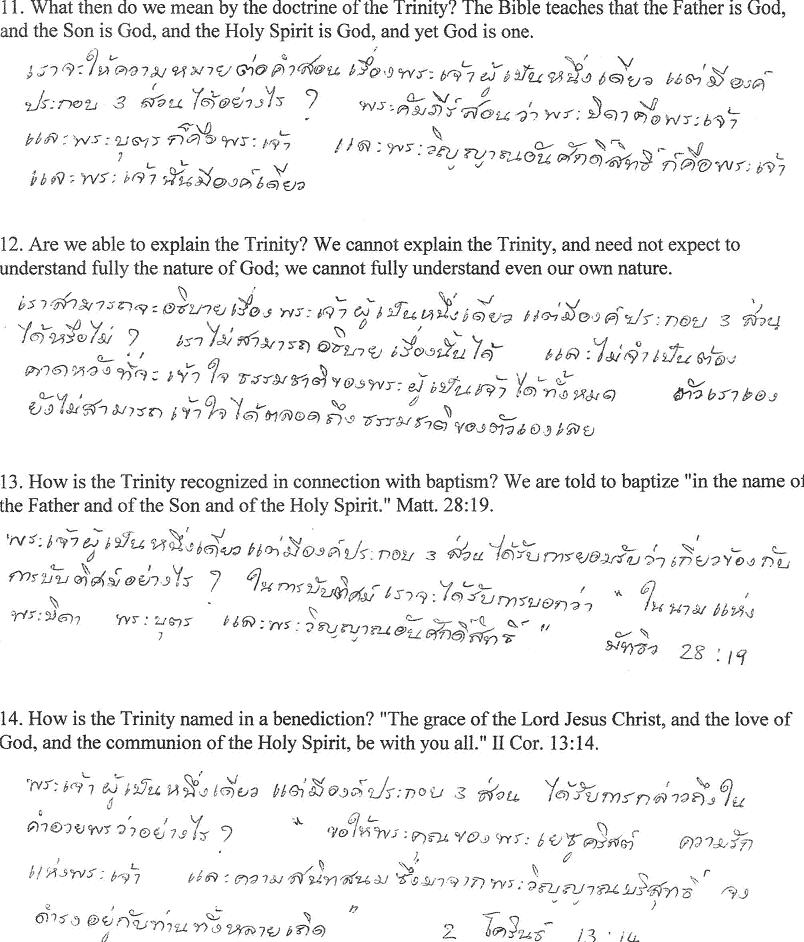 11. What then do we mean by the doctrine of the Trinity? The Bible teaches that the Father is God,
and the Son is God, and the Holy Spirit is God, and yet God is one.
เราจะให้ความหมายต่อคำสอน เรื่องพระเจ้าผู้เป็นหนึ่งเดียว แต่มีองค์
ประกอบ 3 ส่วน ได้อย่างไร ? พระคัมภีร์สอนว่าพระบิดาคือพระเจ้า
และพระบุตรก็คือพระเจ้า และพระวิญญาณอันศักดิ์สิทธิ์ ก็คือพระเจ้า
และพระเจ้านั้นมีองค์เดียว
12. Are we able to explain the Trinity? We cannot explain the Trinity, and need not expect to
understand fully the nature of God; we cannot fully understand even our own nature.
เราสามารถจะอธิบายเรื่อง พระเจ้าผู้เป็นหนึ่งเดียว แต่มีองค์ประกอบ 3 ส่วน
ได้หรือไม่ ? เราไม่สามารถ อธิบาย เรื่องนั้นได้ และไม่จำเป็นต้อง
คาดหวังที่จะ เข้าใจ ธรรมชาติของพระผู้เป็นเจ้า ได้ทั้งหมด ตัวเราเอง
ยังไม่สามารถ เข้าใจได้ตลอดถึง ธรรมชาติของตัวเองเลย
13. How is the Trinity recognized in connection with baptism? We are told to baptize "in the name of
the Father and of the Son and of the Holy Spirit." Matt. 28:19.
พระเจ้าผู้เป็นหนึ่งเดียว แต่มีองค์ประกอบ 3 ส่วน ได้รับการยอมรับว่าเกี่ยวข้องกับ
การบับติศม์อย่างไร ? ในการบับติศม์ เราจะได้รับการบอกว่า " ในนามแห่ง
พระบิดา พระบุตร และพระวิญญาณอันศักดิ์สิทธิ์ " มัทธิว 28 : 19
14. How is the Trinity named in a benediction? "The grace of the Lord Jesus Christ, and the love of
God, and the communion of the Holy Spirit, be with you all." II Cor. 13:14.
พระเจ้าผู้เป็นหนึ่งเดียว แต่มีองค์ประกอบ 3 ส่วน ได้รับการกล่าวถึงใน
คำอวยพรว่าอย่างไร ? " ขอให้พระคุณของพระเยซูคริสต์ ความรัก
แห่งพระเจ้า และความสนิทสนม ซึ่งมาจากพระวิญญาณบริสุทธิ์ จง
ดำรงอยู่กับท่านทั้งหลายเถิด " 2 โครินธ์ 13 : 14